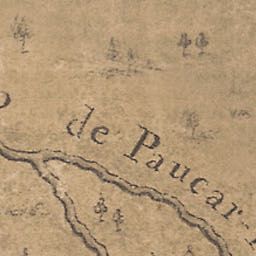 de Paucar-